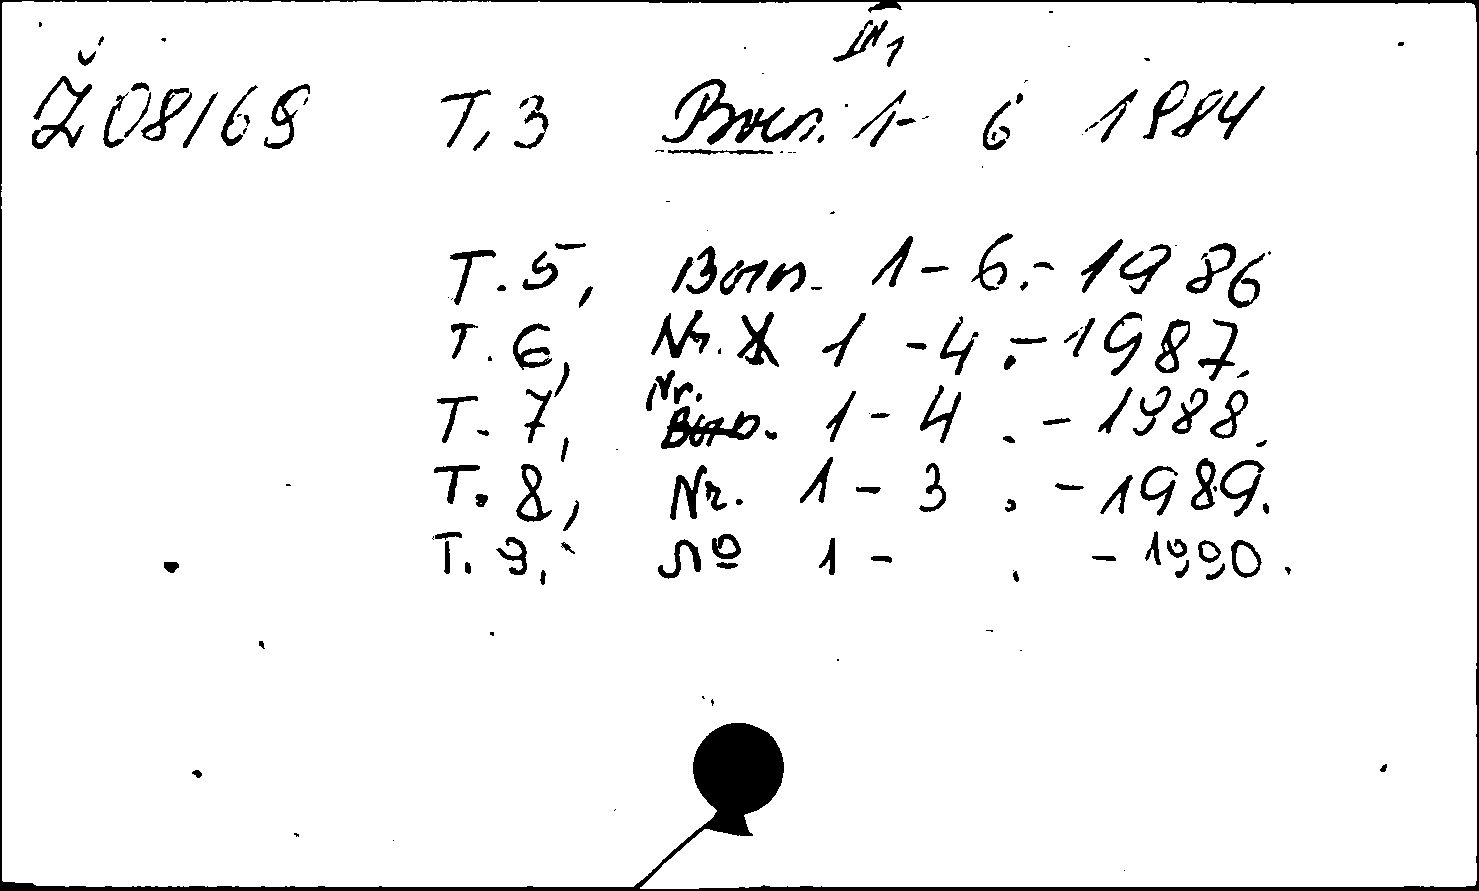 Ž 08169 Т.3 Вып. 1- 6 1984
Т.5, Вып. 1-6.-1986
Т.6, Nr. 1 -4.-1987.
Nr.
Т.7, Вып. 1-4 . -1988.
Т.8, Nr. 1-3 . -1989.
Т.9, № 1- . -1990.